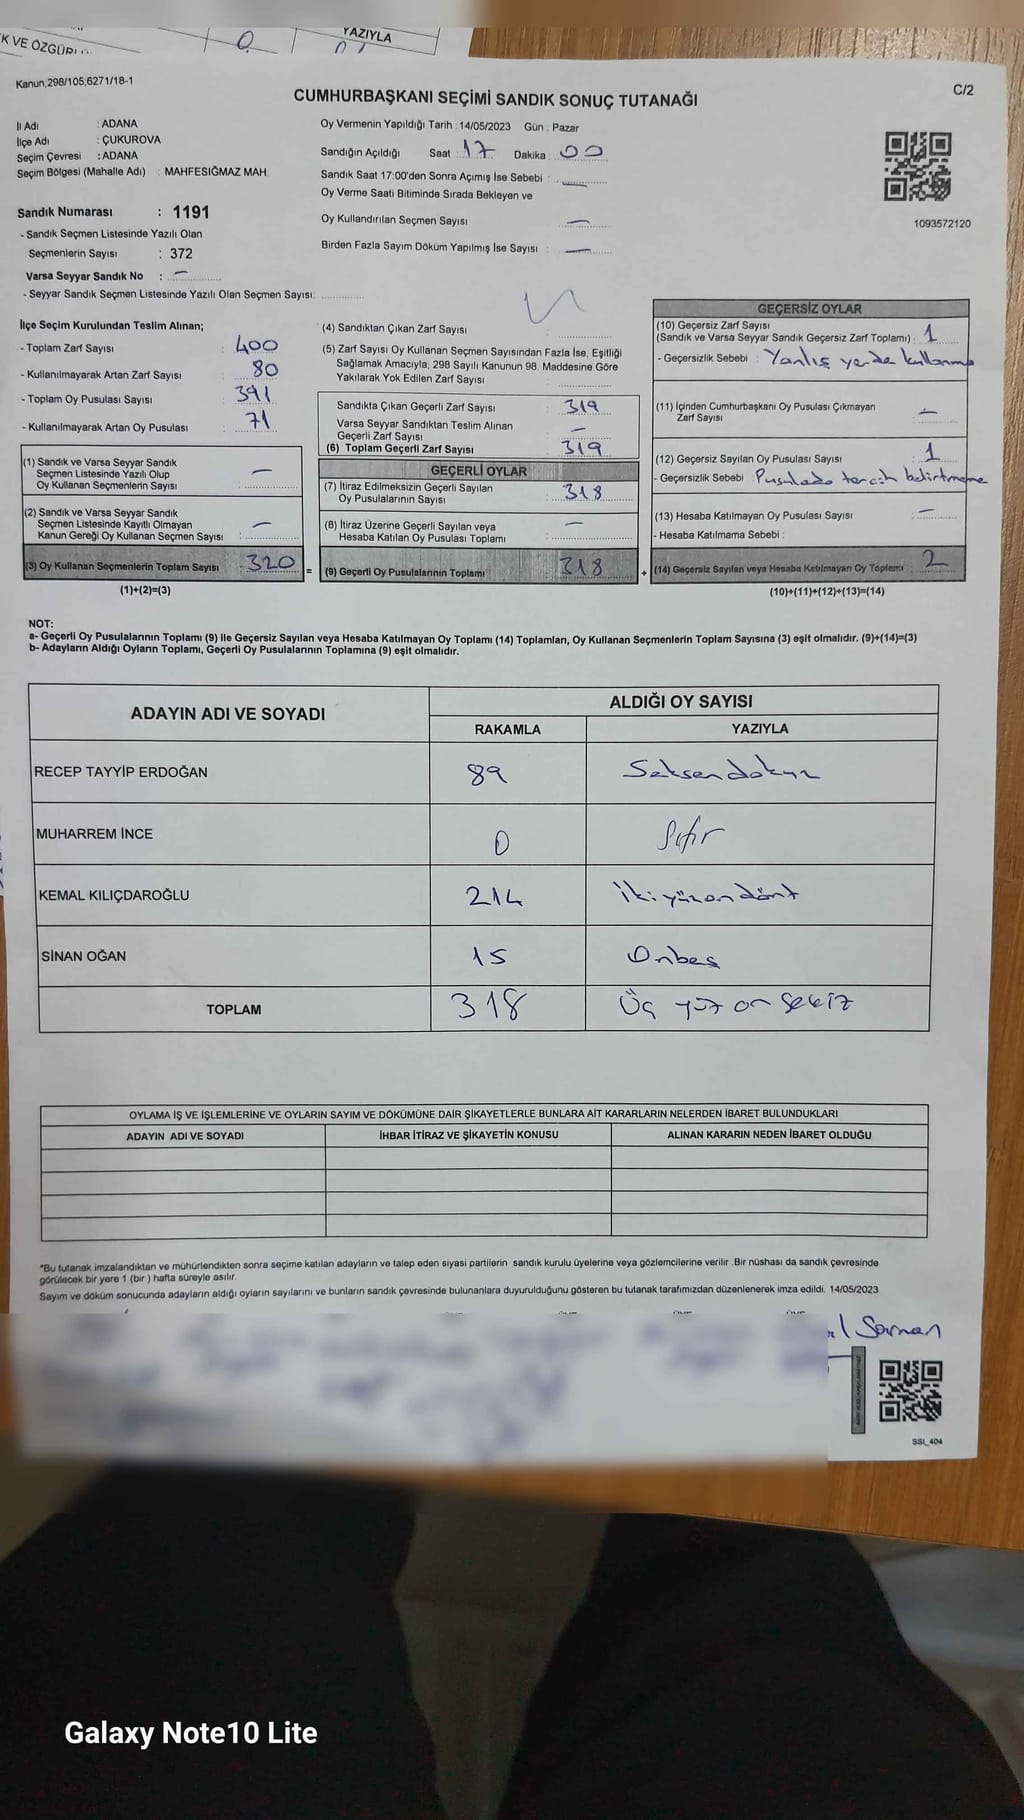 K VE ÖZGÜRL
YAZIYLA
Kanun;298/105;6271/18-1
C/2
CUMHURBAŞKANI SEÇİMİ SANDIK SONUÇ TUTANAĞI
İl Adı : ADANA
İlçe Adı : ÇUKUROVA
Seçim Çevresi : ADANA
Seçim Bölgesi (Mahalle Adı) : MAHFESIĞMAZ MAH.
Oy Vermenin Yapıldığı Tarih : 14/05/2023 Gün : Pazar
Sandığın Açıldığı Saat : 17 Dakika : 00
Sandık Saat 17:00'den Sonra Açımış İse Sebebi : —
Oy Verme Saati Bitiminde Sırada Bekleyen ve
Oy Kullandırılan Seçmen Sayısı —
Birden Fazla Sayım Döküm Yapılmış İse Sayısı : —
1093572120
Sandık Numarası : 1191
- Sandık Seçmen Listesinde Yazılı Olan
Seçmenlerin Sayısı : 372
Varsa Seyyar Sandık No : —
- Seyyar Sandık Seçmen Listesinde Yazılı Olan Seçmen Sayısı:
İlçe Seçim Kurulundan Teslim Alınan;
- Toplam Zarf Sayısı : 400
- Kullanılmayarak Artan Zarf Sayısı : 80
- Toplam Oy Pusulası Sayısı : 391
- Kullanılmayarak Artan Oy Pusulası : 71
(1) Sandık ve Varsa Seyyar Sandık
Seçmen Listesinde Yazılı Olup
Oy Kullanan Seçmenlerin Sayısı : —
(2) Sandık ve Varsa Seyyar Sandık
Seçmen Listesinde Kayıtlı Olmayan
Kanun Gereği Oy Kullanan Seçmen Sayısı : —
(3) Oy Kullanan Seçmenlerin Toplam Sayısı : 320
(1)+(2)=(3)
(4) Sandıktan Çıkan Zarf Sayısı
(5) Zarf Sayısı Oy Kullanan Seçmen Sayısından Fazla İse, Eşitliği
Sağlamak Amacıyla; 298 Sayılı Kanunun 98. Maddesine Göre
Yakılarak Yok Edilen Zarf Sayısı :
Sandıkta Çıkan Geçerli Zarf Sayısı : 319
Varsa Seyyar Sandıktan Teslim Alınan
Geçerli Zarf Sayısı : —
(6) Toplam Geçerli Zarf Sayısı : 319
GEÇERLİ OYLAR
(7) İtiraz Edilmeksizin Geçerli Sayılan
Oy Pusulalarının Sayısı : 318
(8) İtiraz Üzerine Geçerli Sayılan veya
Hesaba Katılan Oy Pusulası Toplamı : —
= (9) Geçerli Oy Pusulalarının Toplamı : 318
GEÇERSİZ OYLAR
(10) Geçersiz Zarf Sayısı
(Sandık ve Varsa Seyyar Sandık Geçersiz Zarf Toplamı) : 1
- Geçersizlik Sebebi : Yanlış yerde kullanma
(11) İçinden Cumhurbaşkanı Oy Pusulası Çıkmayan
Zarf Sayısı : —
(12) Geçersiz Sayılan Oy Pusulası Sayısı : 1
- Geçersizlik Sebebi : Pusulada tercih belirtmeme
(13) Hesaba Katılmayan Oy Pusulası Sayısı : —
- Hesaba Katılmama Sebebi :
+ (14) Geçersiz Sayılan veya Hesaba Katılmayan Oy Toplamı : 2
(10)+(11)+(12)+(13)=(14)
NOT:
a- Geçerli Oy Pusulalarının Toplamı (9) ile Geçersiz Sayılan veya Hesaba Katılmayan Oy Toplamı (14) Toplamları, Oy Kullanan Seçmenlerin Toplam Sayısına (3) eşit olmalıdır. (9)+(14)=(3)
b- Adayların Aldığı Oyların Toplamı, Geçerli Oy Pusulalarının Toplamına (9) eşit olmalıdır.
ADAYIN ADI VE SOYADI ALDIĞI OY SAYISI
RAKAMLA YAZIYLA
RECEP TAYYİP ERDOĞAN 89 Seksendokuz
MUHARREM İNCE 0 Sıfır
KEMAL KILIÇDAROĞLU 214 İkiyüzondört
SİNAN OĞAN 15 Onbeş
TOPLAM 318 Üç yüz on sekiz
OYLAMA İŞ VE İŞLEMLERİNE VE OYLARIN SAYIM VE DÖKÜMÜNE DAİR ŞİKAYETLERLE BUNLARA AİT KARARLARIN NELERDEN İBARET BULUNDUKLARI
ADAYIN ADI VE SOYADI İHBAR İTİRAZ VE ŞİKAYETİN KONUSU ALINAN KARARIN NEDEN İBARET OLDUĞU
*Bu tutanak imzalandıktan ve mühürlendikten sonra seçime katılan adayların ve talep eden siyasi partilerin sandık kurulu üyelerine veya gözlemcilerine verilir .Bir nüshası da sandık çevresinde
görülecek bir yere 1 (bir ) hafta süreyle asılır.
Sayım ve döküm sonucunda adayların aldığı oyların sayılarını ve bunların sandık çevresinde bulunanlara duyurulduğunu gösteren bu tutanak tarafımızdan düzenlenerek imza edildi. 14/05/2023
Saman
SSI_404
Galaxy Note10 Lite